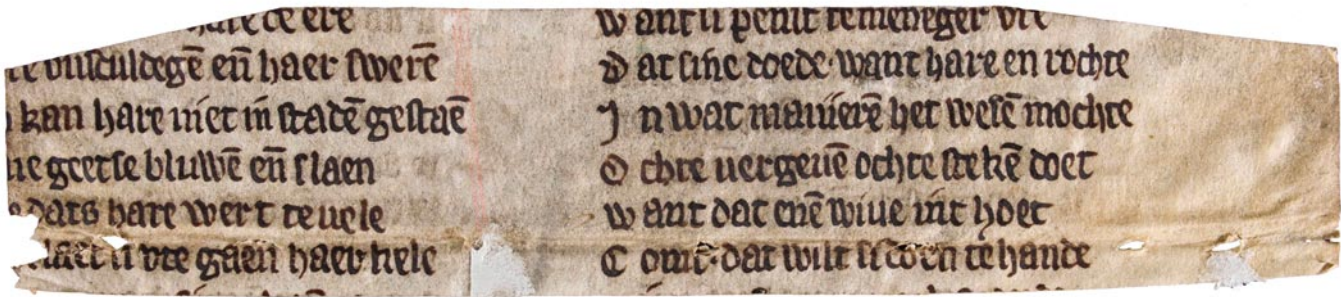 hare te ere
onsculdegē en̄ haer swerē
kan hare niet in stadē gestaē
geetse bluwē en̄ slaen
dats hare wert te vele
vte gaen haer hele
W ant si penst te meneger vre
D at sine doede · want hare en rochte
J n wat manierē het wesē mochte
O chte uergeuē ochte stekē doet
W ant dat enē wiue int hoet
C omt · dat wilt si doen te hande